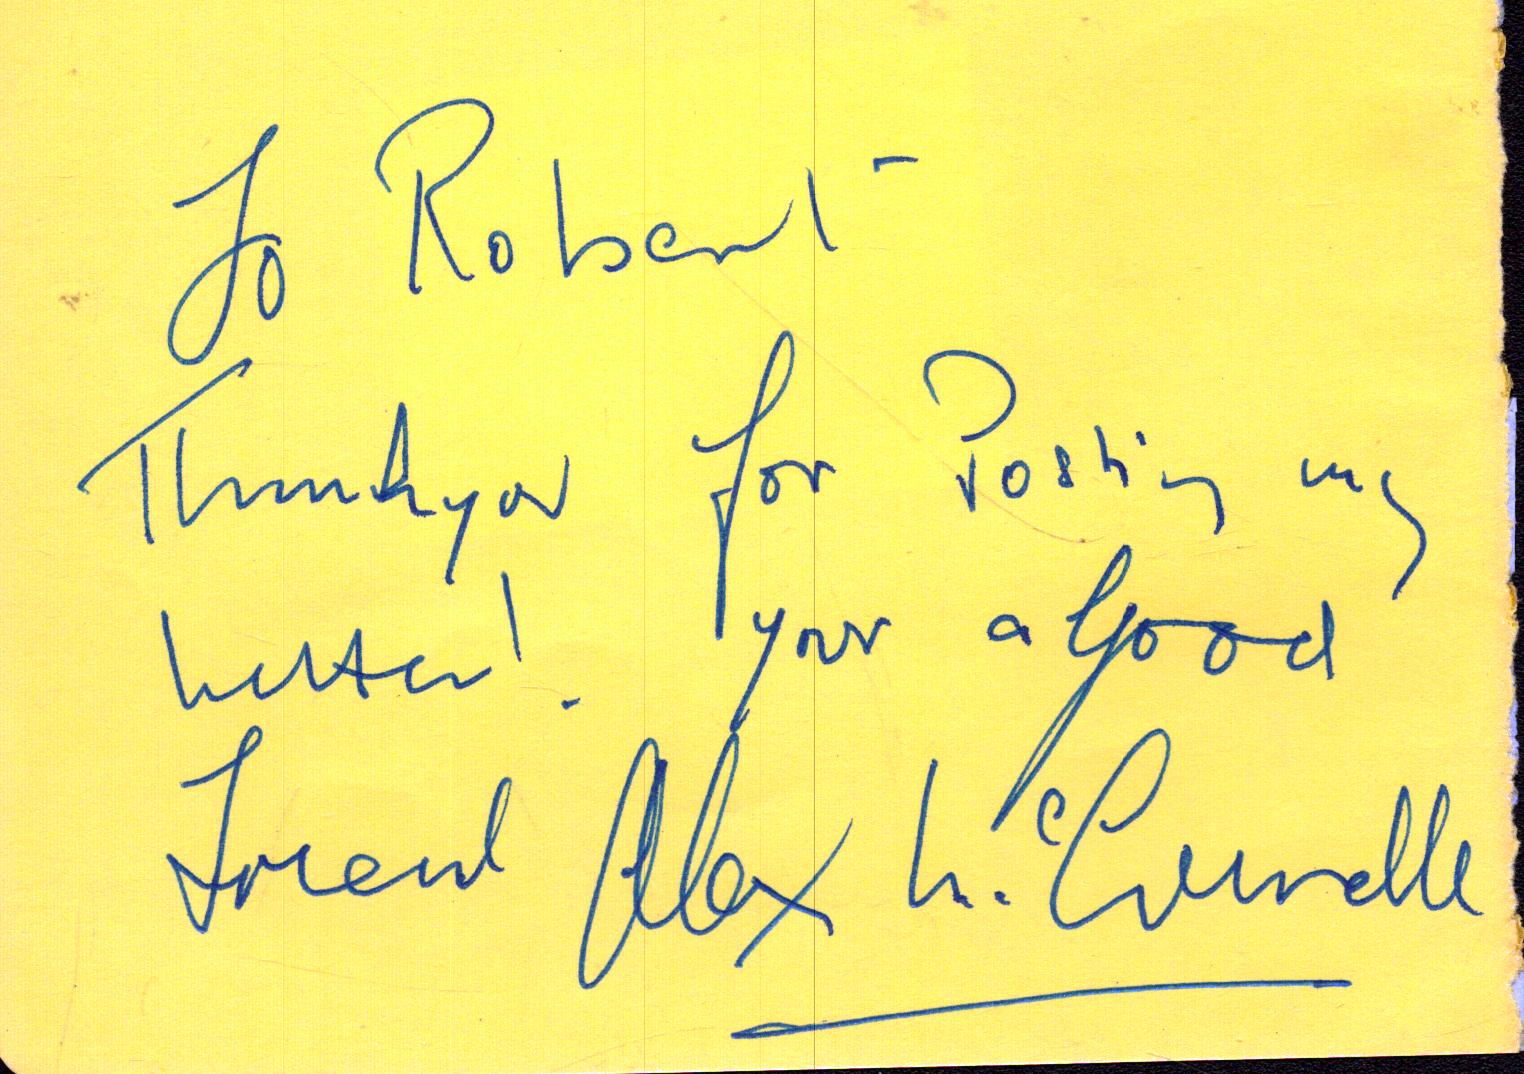 To Robert
Thankyou for Posting my
Letter! your a Good
Friend Alex